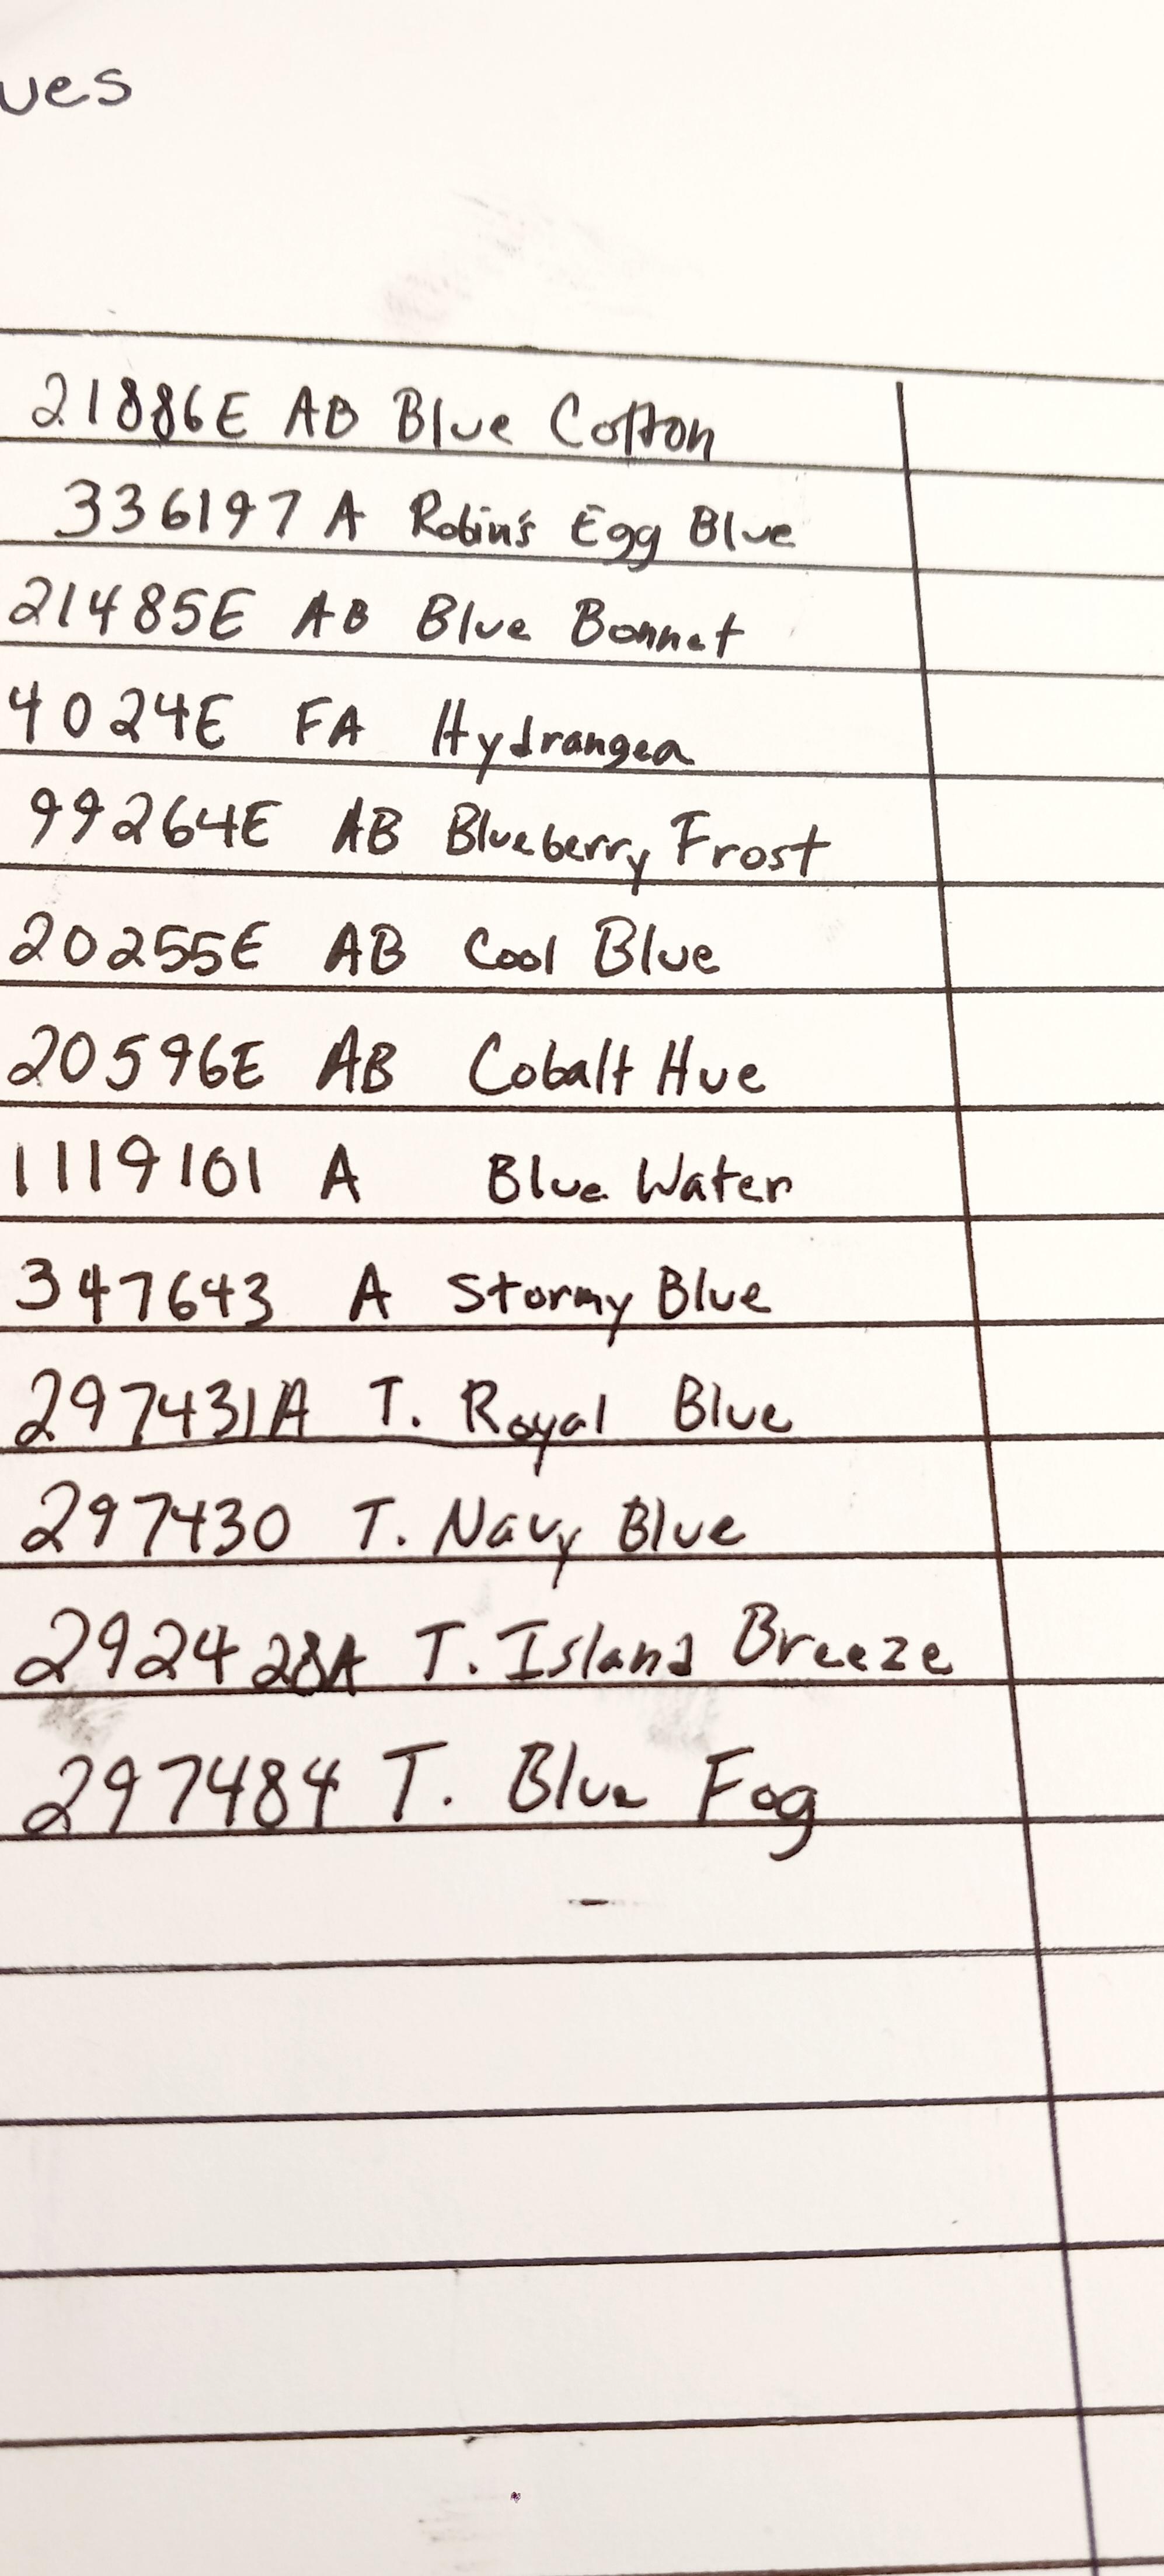 ues
21886E AB Blue Cotton
336197 A Robin's Egg Blue
21485E AB Blue Bonnet
4024E FA Hydrangea
99264E AB Blueberry Frost
20255E AB Cool Blue
20596E AB Cobalt Hue
1119101 A Blue Water
347643 A Stormy Blue
297431A T. Royal Blue
297430 T. Navy Blue
292428A T. Island Breeze
297484 T. Blue Fog